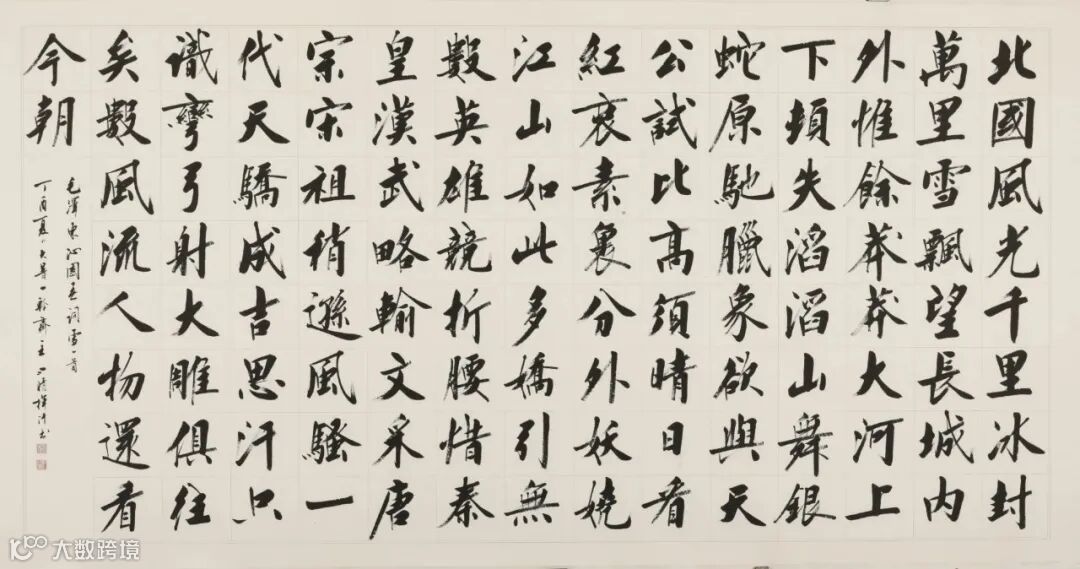 北國風光千里冰封
萬里雪飄望長城內
外惟餘莽莽大河上
下頓失滔滔山舞銀
蛇原馳臘象欲與天
公試比高須晴日看
紅裝素裹分外妖嬈
江山如此多嬌引無
數英雄競折腰惜秦
皇漢武略輸文采唐
宗宋祖稍遜風騷一
代天驕成吉思汗只
識彎弓射大雕俱往
矣數風流人物還看
今朝
毛澤東沁園春詞雪一首
丁酉夏大暑
大数跨境